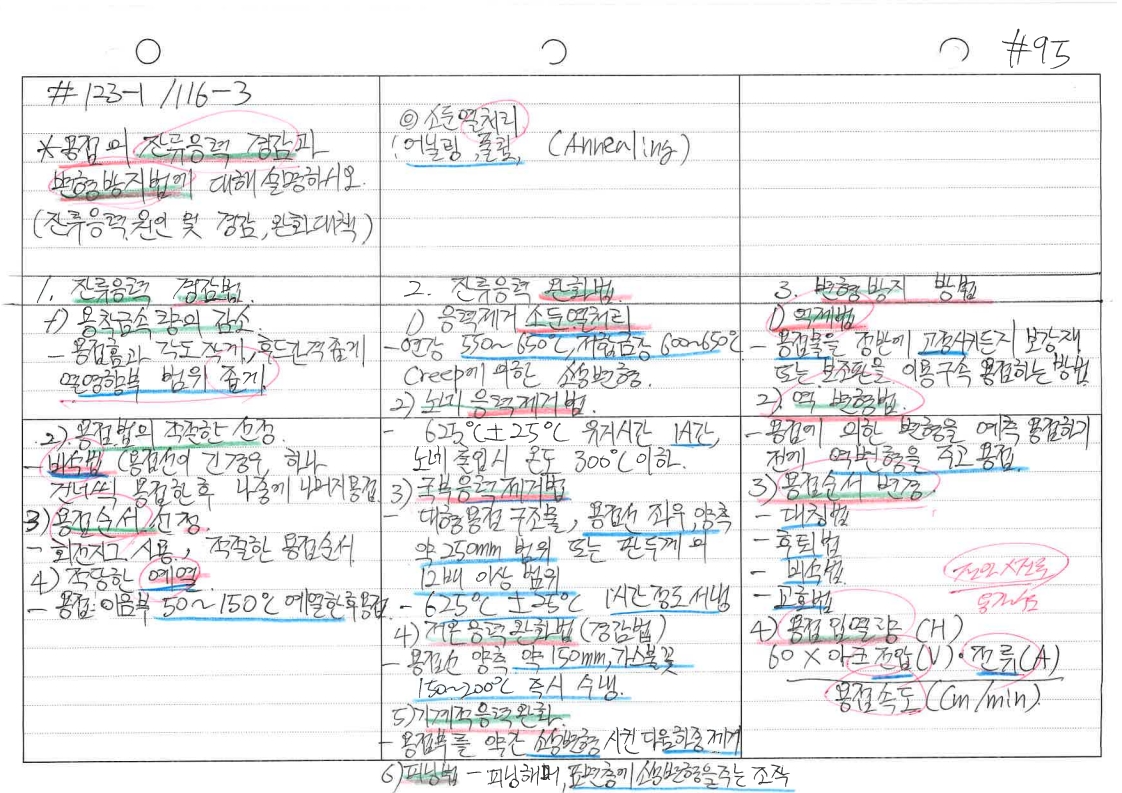 #95
# 123-1 / 116-3
* 용접의 잔류응력 경감과
변형방지법에 대해 설명하시오.
(잔류응력 원인 및 경감, 완화대책)
◎ 소둔열처리
어닐링, 풀림, (Annealing)
1. 잔류응력 경감법.
1) 용착금속 량의 감소.
- 용접홈과 각도 작게, 루트간격 좁게
열영향부 범위 좁게.
2) 용접법의 적절한 선정.
- 비석법 (용접선이 긴경우, 하나
건너씩 용접한 후 나중에 나머지 용접.
3) 용접순서 선정.
- 회전지그 사용, 적절한 용접순서
4) 적당한 예열
- 용접 이음부 50~150℃ 예열한후 용접.
2. 잔류응력 완화법.
1) 응력제거 소둔열처리
- 연강 550~650℃, 저합금강 600~650℃
Creep에 의한 소성변형.
2) 노내 응력제거법.
- 625℃±25℃ 유지시간 1시간,
노내 출입시 온도 300℃이하.
3) 국부응력제거법
- 대형용접 구조물, 용접선 좌우, 양측
약 250mm 범위 또는 판두께의
12배 이상 범위
- 625℃ ±25℃ 1시간정도 서냉
4) 저온응력완화법 (경감법)
- 용접선 양측 약 150mm, 가스불꽃
150~200℃ 즉시 수냉.
5) 기계적응력완화.
- 용접부를 약간 소성변형 시킨다음 하중제거
6) 피닝법 - 피닝해머, 표면층에 소성변형을 주는 조작
3. 변형방지 방법
1) 억제법
- 용접물을 정반에 고정시키든지 보강재
또는 보조판을 이용구속 용접하는 방법.
2) 역 변형법.
- 용접에 의한 변형을 예측 용접하기
전에 역변형을 주고 용접.
3) 용접순서 변경.
- 대칭법
- 후퇴법
- 비석법.
- 교호법
4) 용접입열량 (H)
60 × 아크 전압(V)·전류(A)
용접속도 (Cm/min)